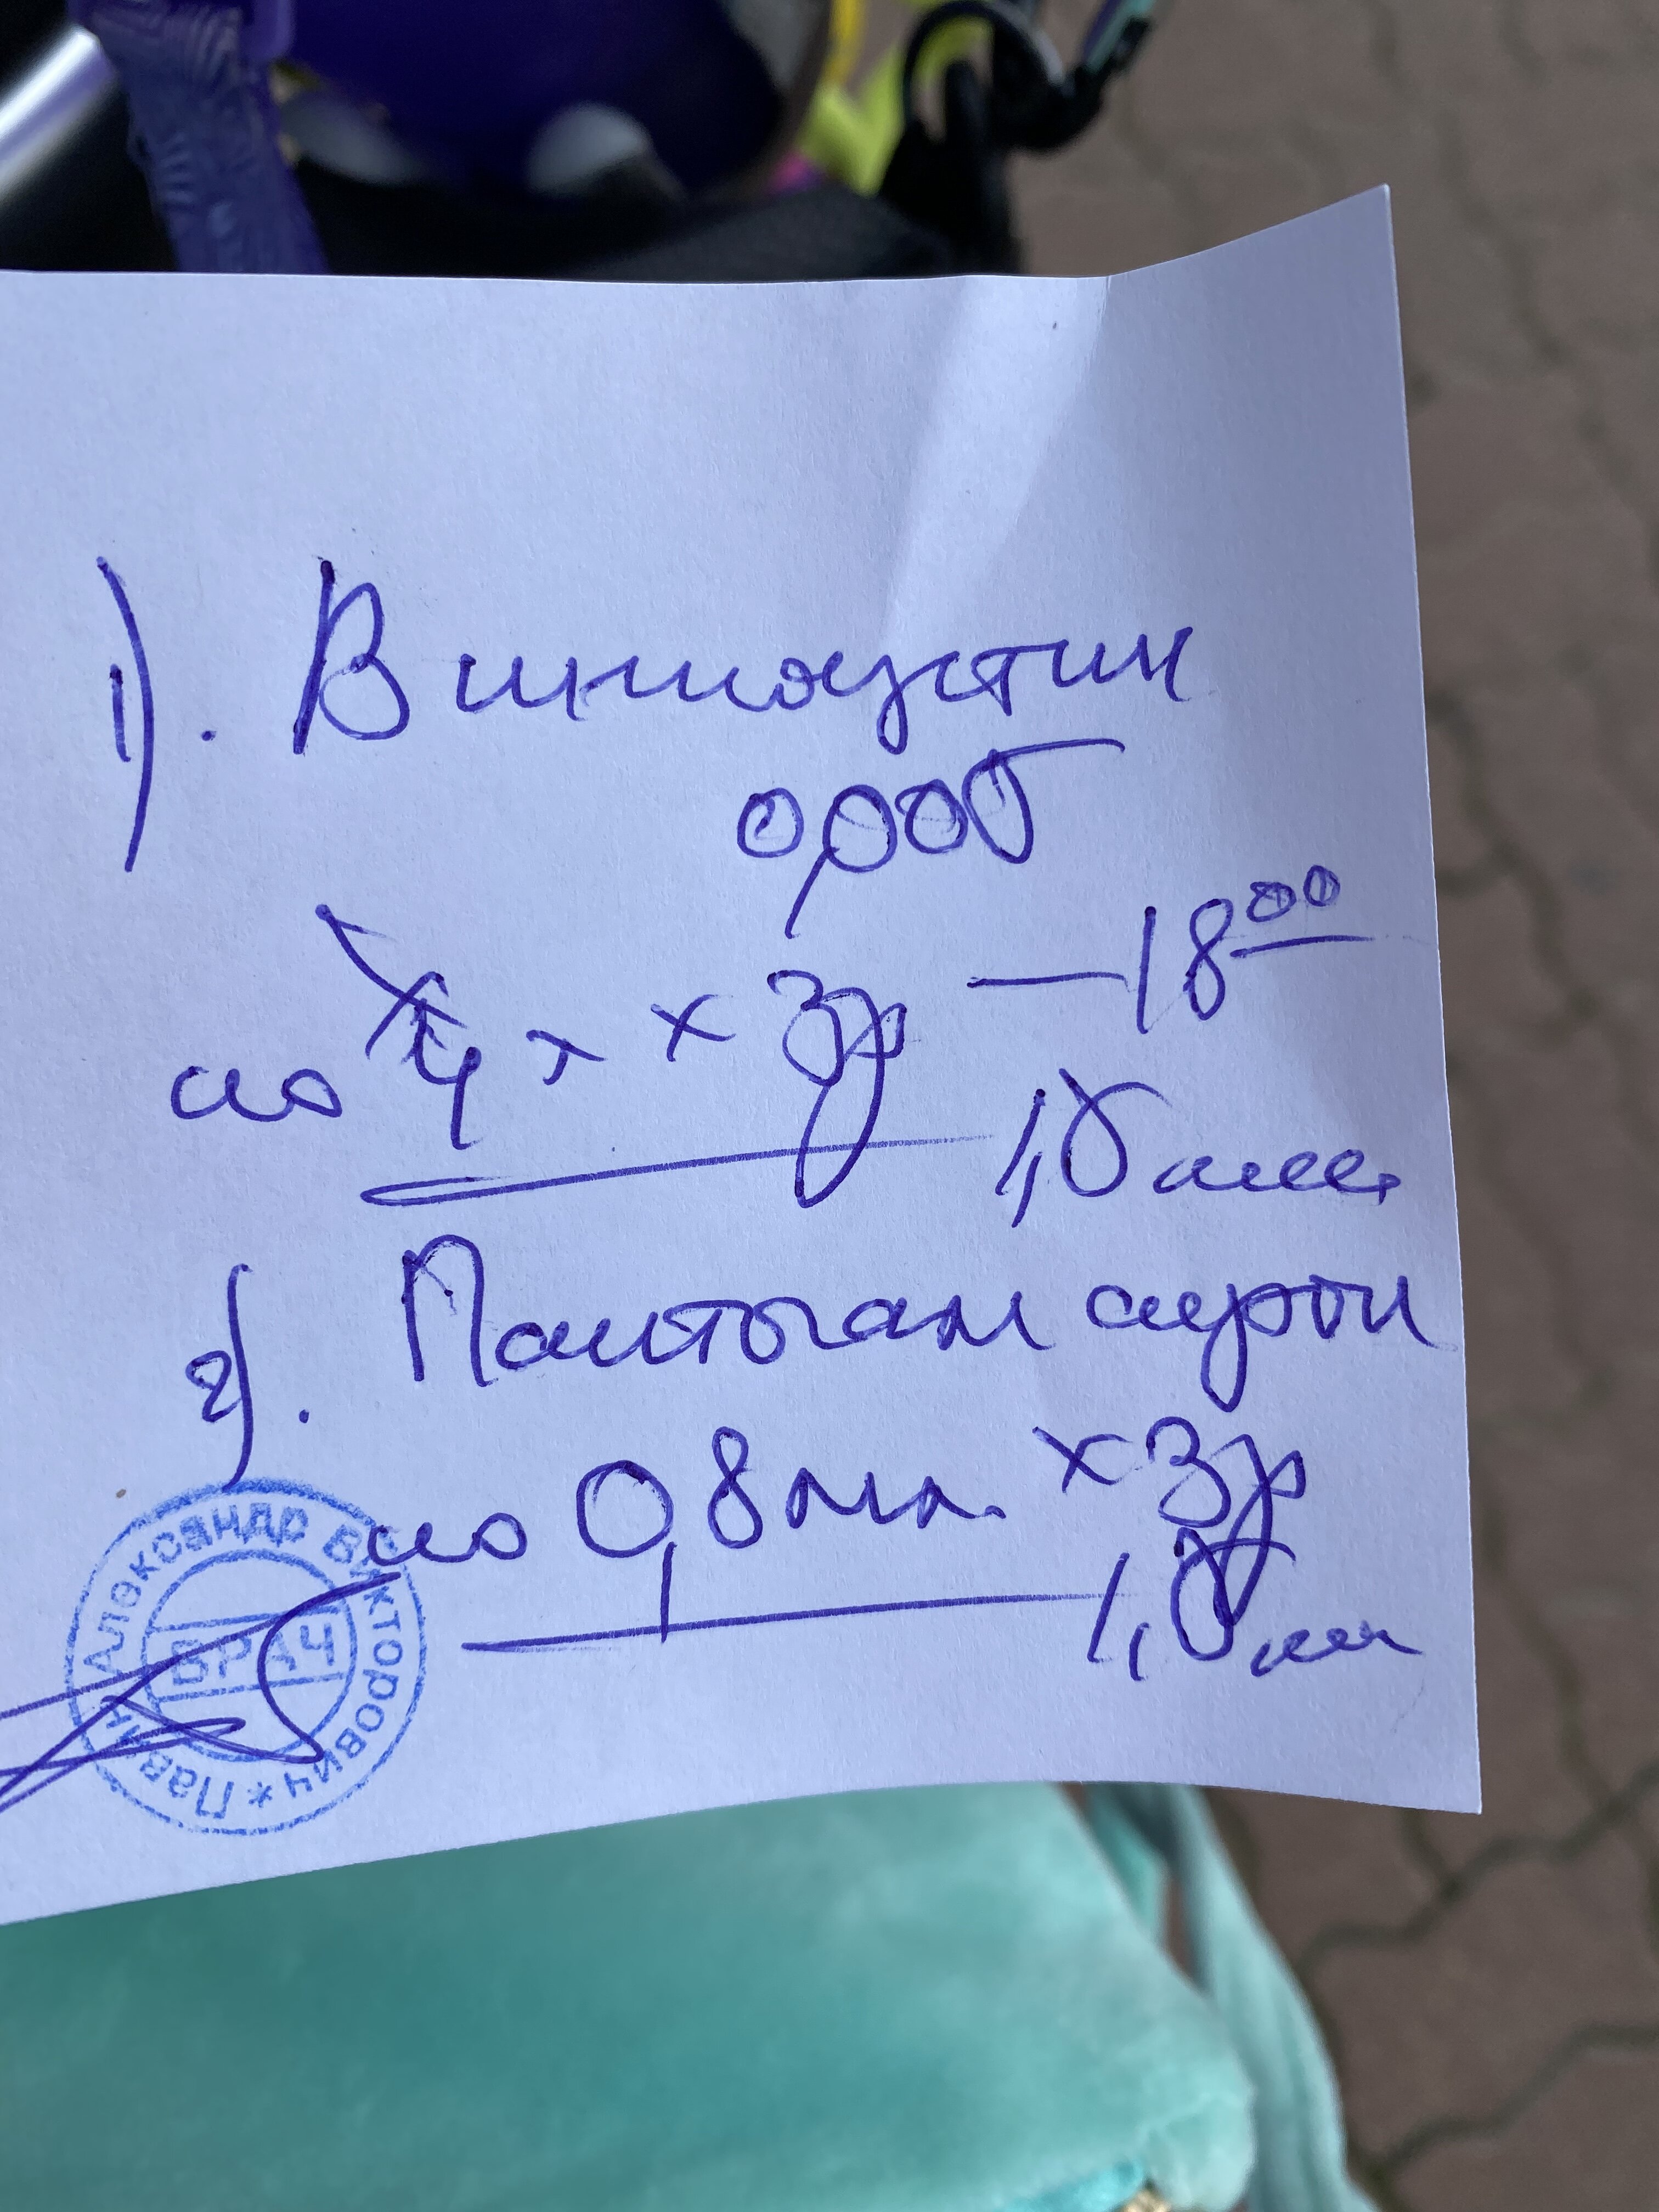 1). Винпоцетин
0,005
по ¼ т х 3р — 18⁰⁰
1,5 мес.
2). Пантогам сироп
по 0,8 мл. х 3р
1,5 мес
Павлин Александр Викторович *
ВРАЧ